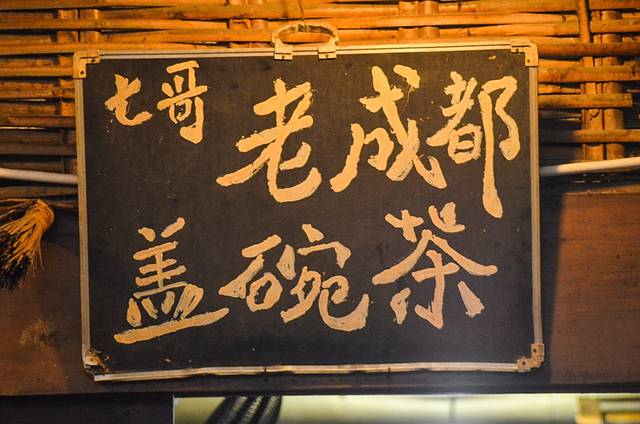 七哥 老成都
盖碗茶